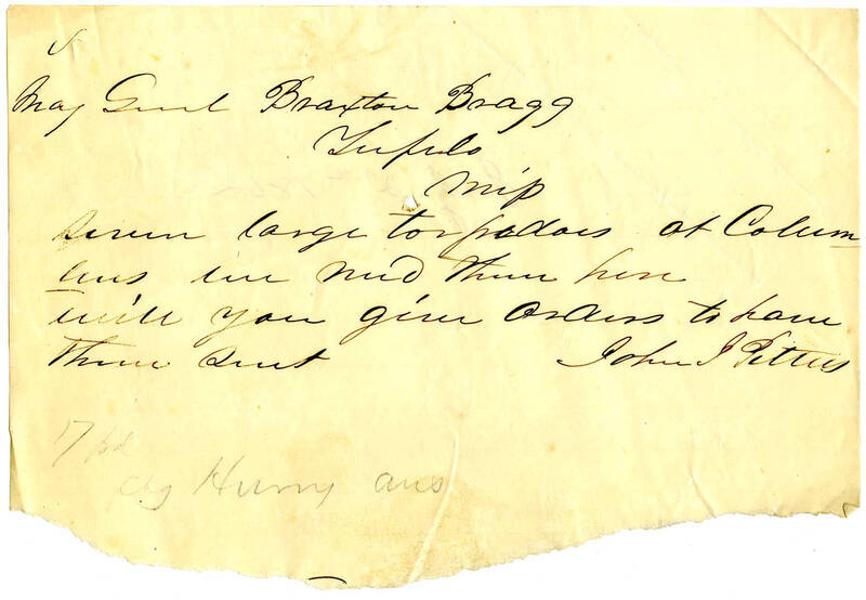 Maj Genl Braxton Bragg
Tupelo
Miss
seven large torpedoes at Colum
bus we need them here
will you give orders to have
them sent John J Pettus
17 pd
Chg Hurry ans